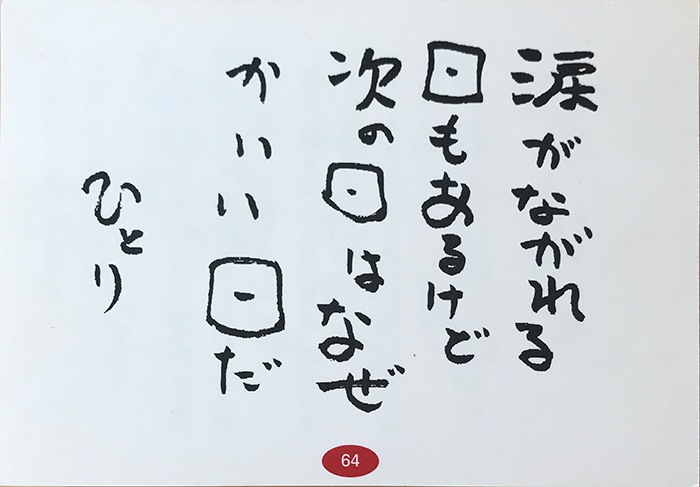 涙がながれる
日もあるけど
次の日はなぜ
かいい日だ
ひとり
64